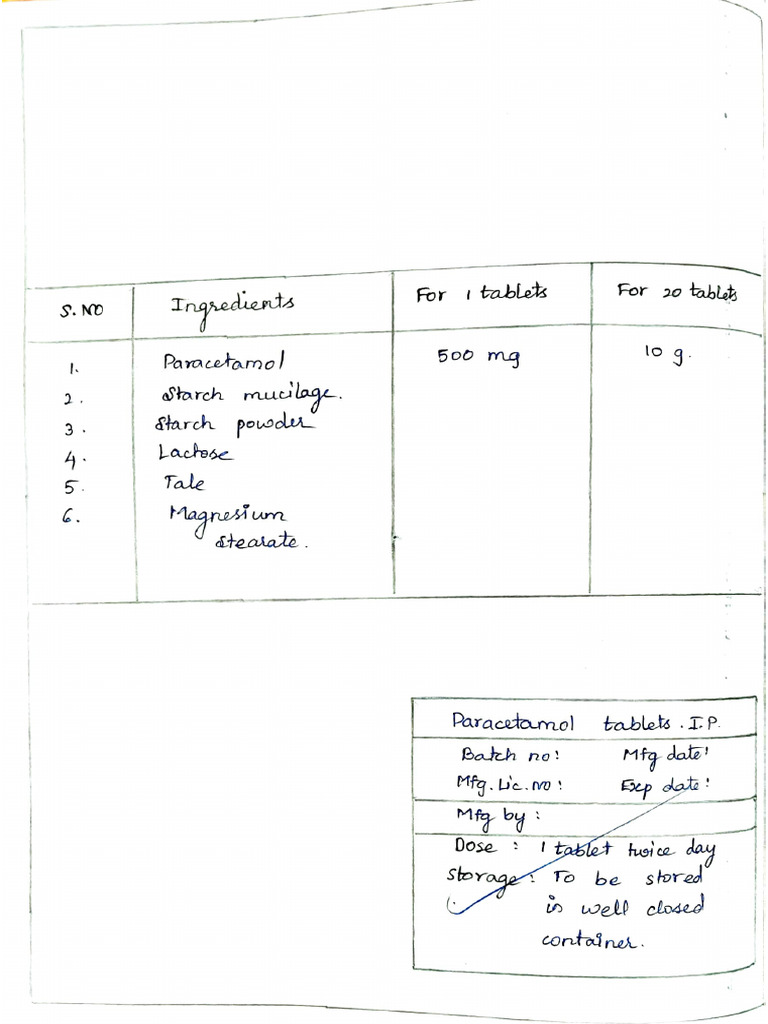 S. NO Ingredients For 1 tablets For 20 tablets
1. Paracetamol 500 mg 10 g.
2. Starch mucilage.
3. Starch powder
4. Lactose
5. Talc
6. Magnesium
Stearate.
Paracetamol tablets. I.P.
Batch no: Mfg date:
Mfg. Lic. No: Exp date:
Mfg by:
Dose : 1 tablet twice day
Storage : To be stored
in well closed
container.